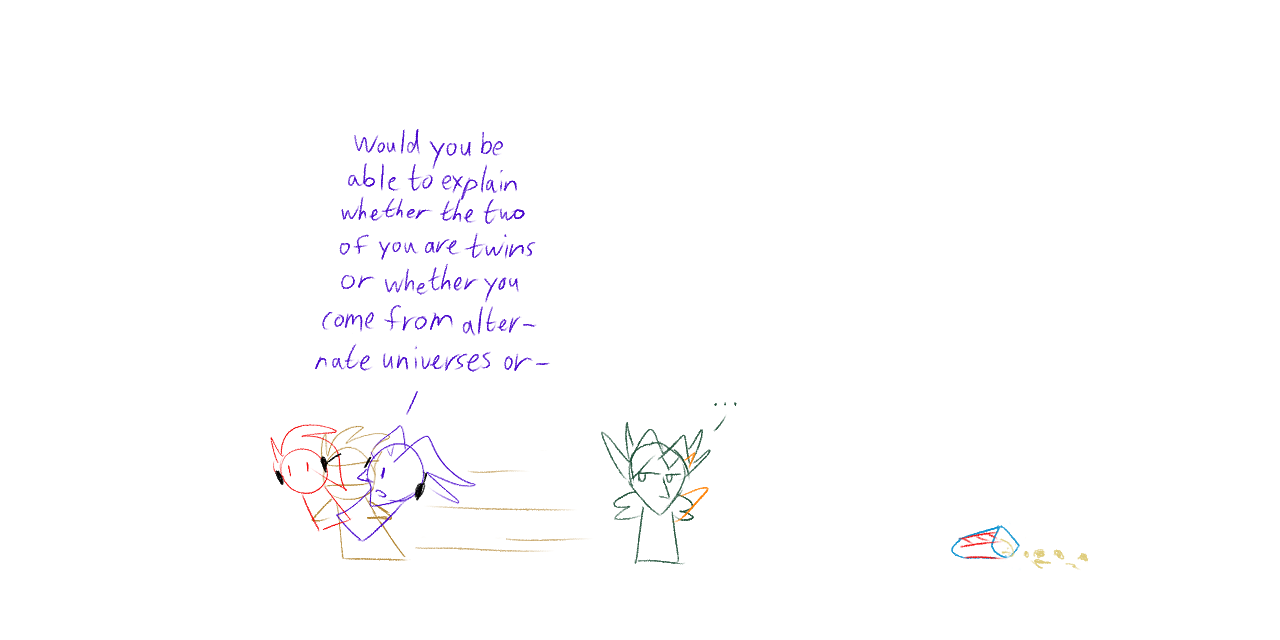 Would you be
able to explain
whether the two
of you are twins
or whether you
come from alter-
nate universes or-
...